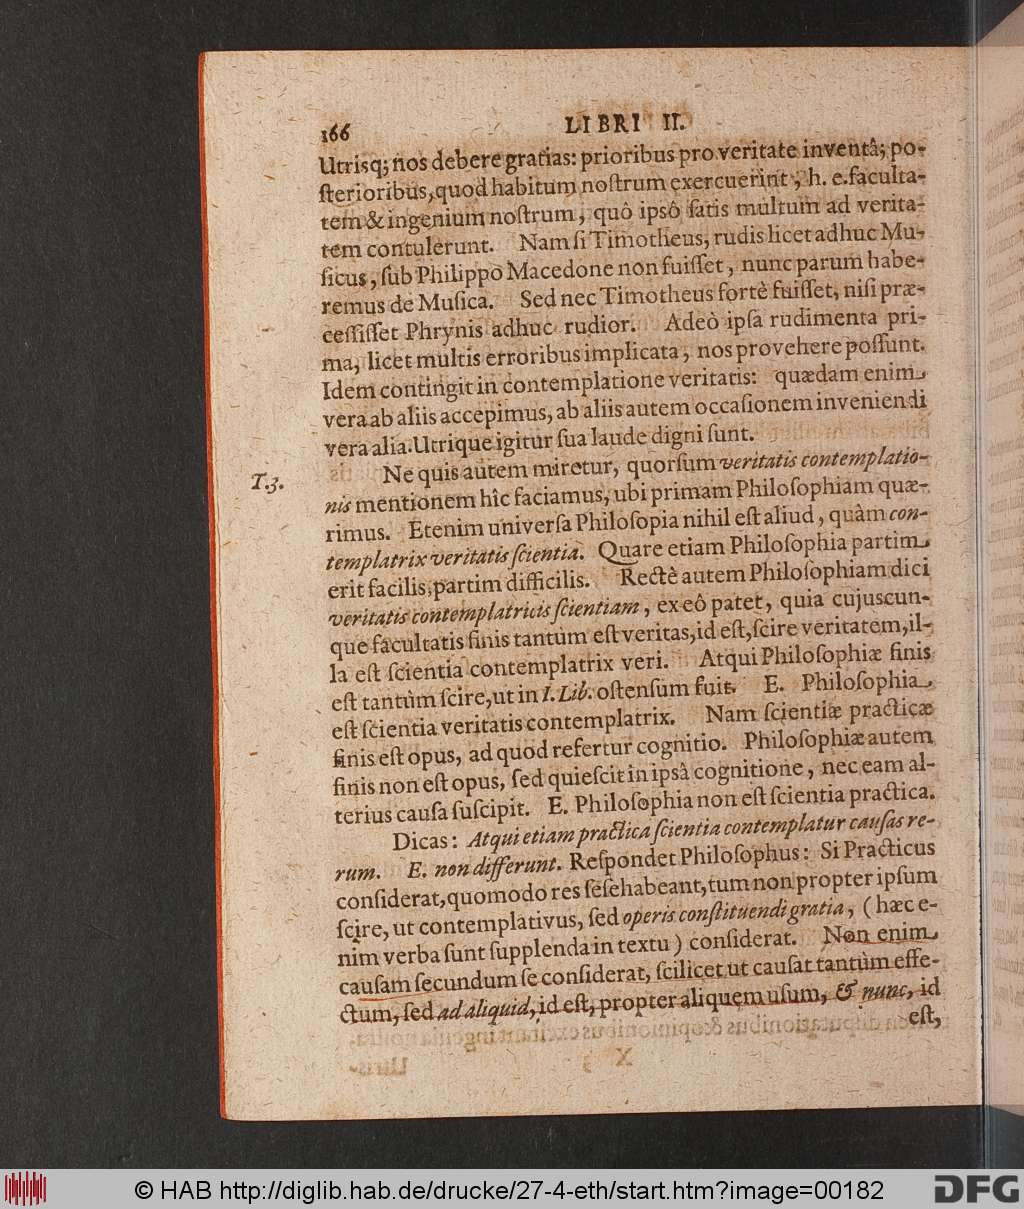 166 LIBRI II.
Utrisq; nos debere gratias: prioribus pro veritate inventâ; po-
ſterioribus, quod habitum noſtrum exercuerint, h. e. faculta-
tem & ingenium noſtrum, quô ipsô ſatis multum ad verita-
tem contulerunt. Nam ſi Timotheus, rudis licet adhuc Mu-
ſicus, ſub Philippo Macedone non fuiſſet, nunc parum habe-
remus de Muſica. Sed nec Timotheus fortè fuiſſet, niſi præ-
ceſſiſſet Phrynis adhuc rudior. Adeò ipſa rudimenta pri-
ma, licet multis erroribus implicata, nos provehere poſſunt.
Idem contingit in contemplatione veritatis: quædam enim
vera ab aliis accepimus, ab aliis autem occaſionem inveniendi
vera alia. Utrique igitur ſua laude digni ſunt.
T.3. Ne quis autem miretur, quorſum veritatis contemplatio-
nis mentionem hîc faciamus, ubi primam Philoſophiam quæ-
rimus. Etenim univerſa Philoſopia nihil eſt aliud, quàm con-
templatrix veritatis ſcientia. Quare etiam Philoſophia partim
erit facilis, partim difficilis. Rectè autem Philoſophiam dici
veritatis contemplatricis ſcientiam, ex eô patet, quia cujuscun-
que facultatis finis tantùm eſt veritas, id eſt, ſcire veritatem, il-
la eſt ſcientia contemplatrix veri. Atqui Philoſophiæ finis
eſt tantùm ſcire, ut in I. Lib. oſtenſum fuit. E. Philoſophia
eſt ſcientia veritatis contemplatrix. Nam ſcientiæ practicæ
finis eſt opus, ad quod refertur cognitio. Philoſophiæ autem
finis non eſt opus, ſed quieſcit in ipsâ cognitione, nec eam al-
terius cauſa ſuſcipit. E. Philoſophia non eſt ſcientia practica.
Dicas: Atqui etiam practica ſcientia contemplatur cauſas re-
rum. E. non differunt. Reſpondet Philoſophus: Si Practicus
conſiderat, quomodo res ſeſe habeant, tum non propter ipſum
ſcire, ut contemplativus, ſed operis conſtituendi gratia, (hæc e-
nim verba ſunt ſupplenda in textu) conſiderat. Non enim
cauſam ſecundum ſe conſiderat, ſcilicet ut cauſat tantùm effe-
ctum, ſed ad aliquid, id eſt, propter aliquem uſum, & nunc, id
eſt,
© HAB http://diglib.hab.de/drucke/27-4-eth/start.htm?image=00182
DFG